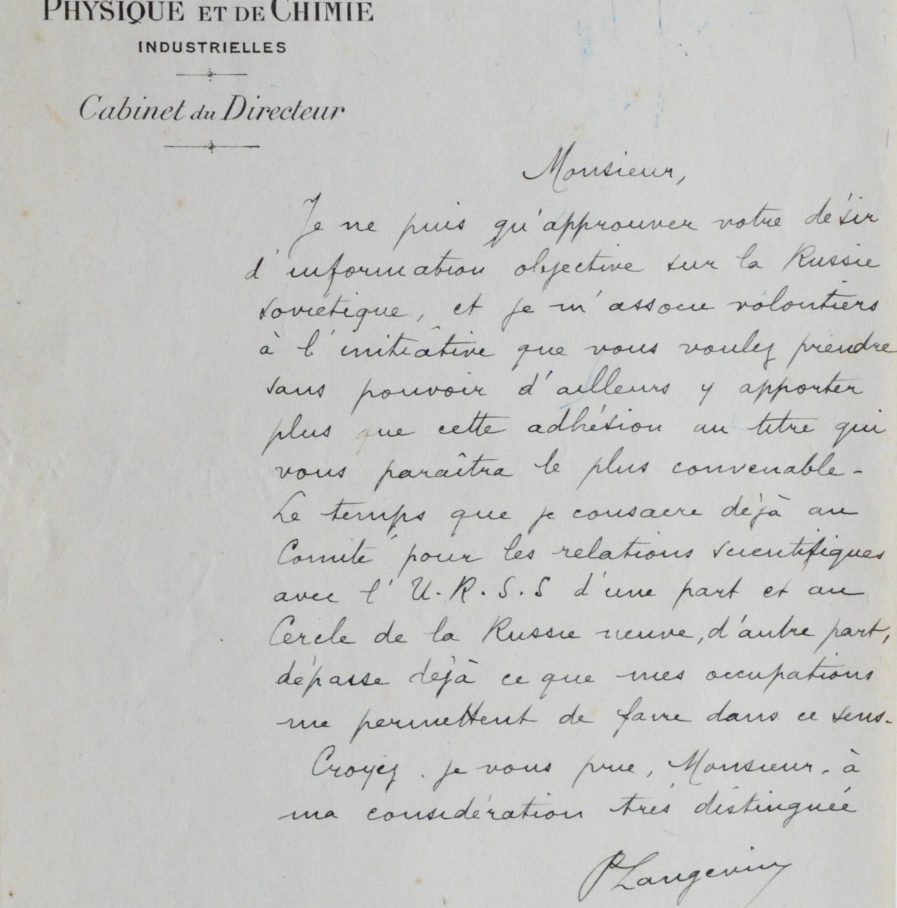 PHYSIQUE ET DE CHIMIE
INDUSTRIELLES
Cabinet du Directeur
Monsieur,
Je ne puis qu'approuver votre désir
d'information objective sur la Russie
soviétique, et je m'associe volontiers
à l'initiative que vous voulez prendre
sans pouvoir d'ailleurs y apporter
plus que cette adhésion au titre qui
vous paraîtra le plus convenable -
Le temps que je consacre déjà au
Comité pour les relations scientifiques
avec l'U.R.S.S d'une part et au
Cercle de la Russie neuve, d'autre part,
dépasse déjà ce que mes occupations
me permettent de faire dans ce sens -
Croyez, je vous prie, Monsieur, à
ma considération très distinguée
P Langevin